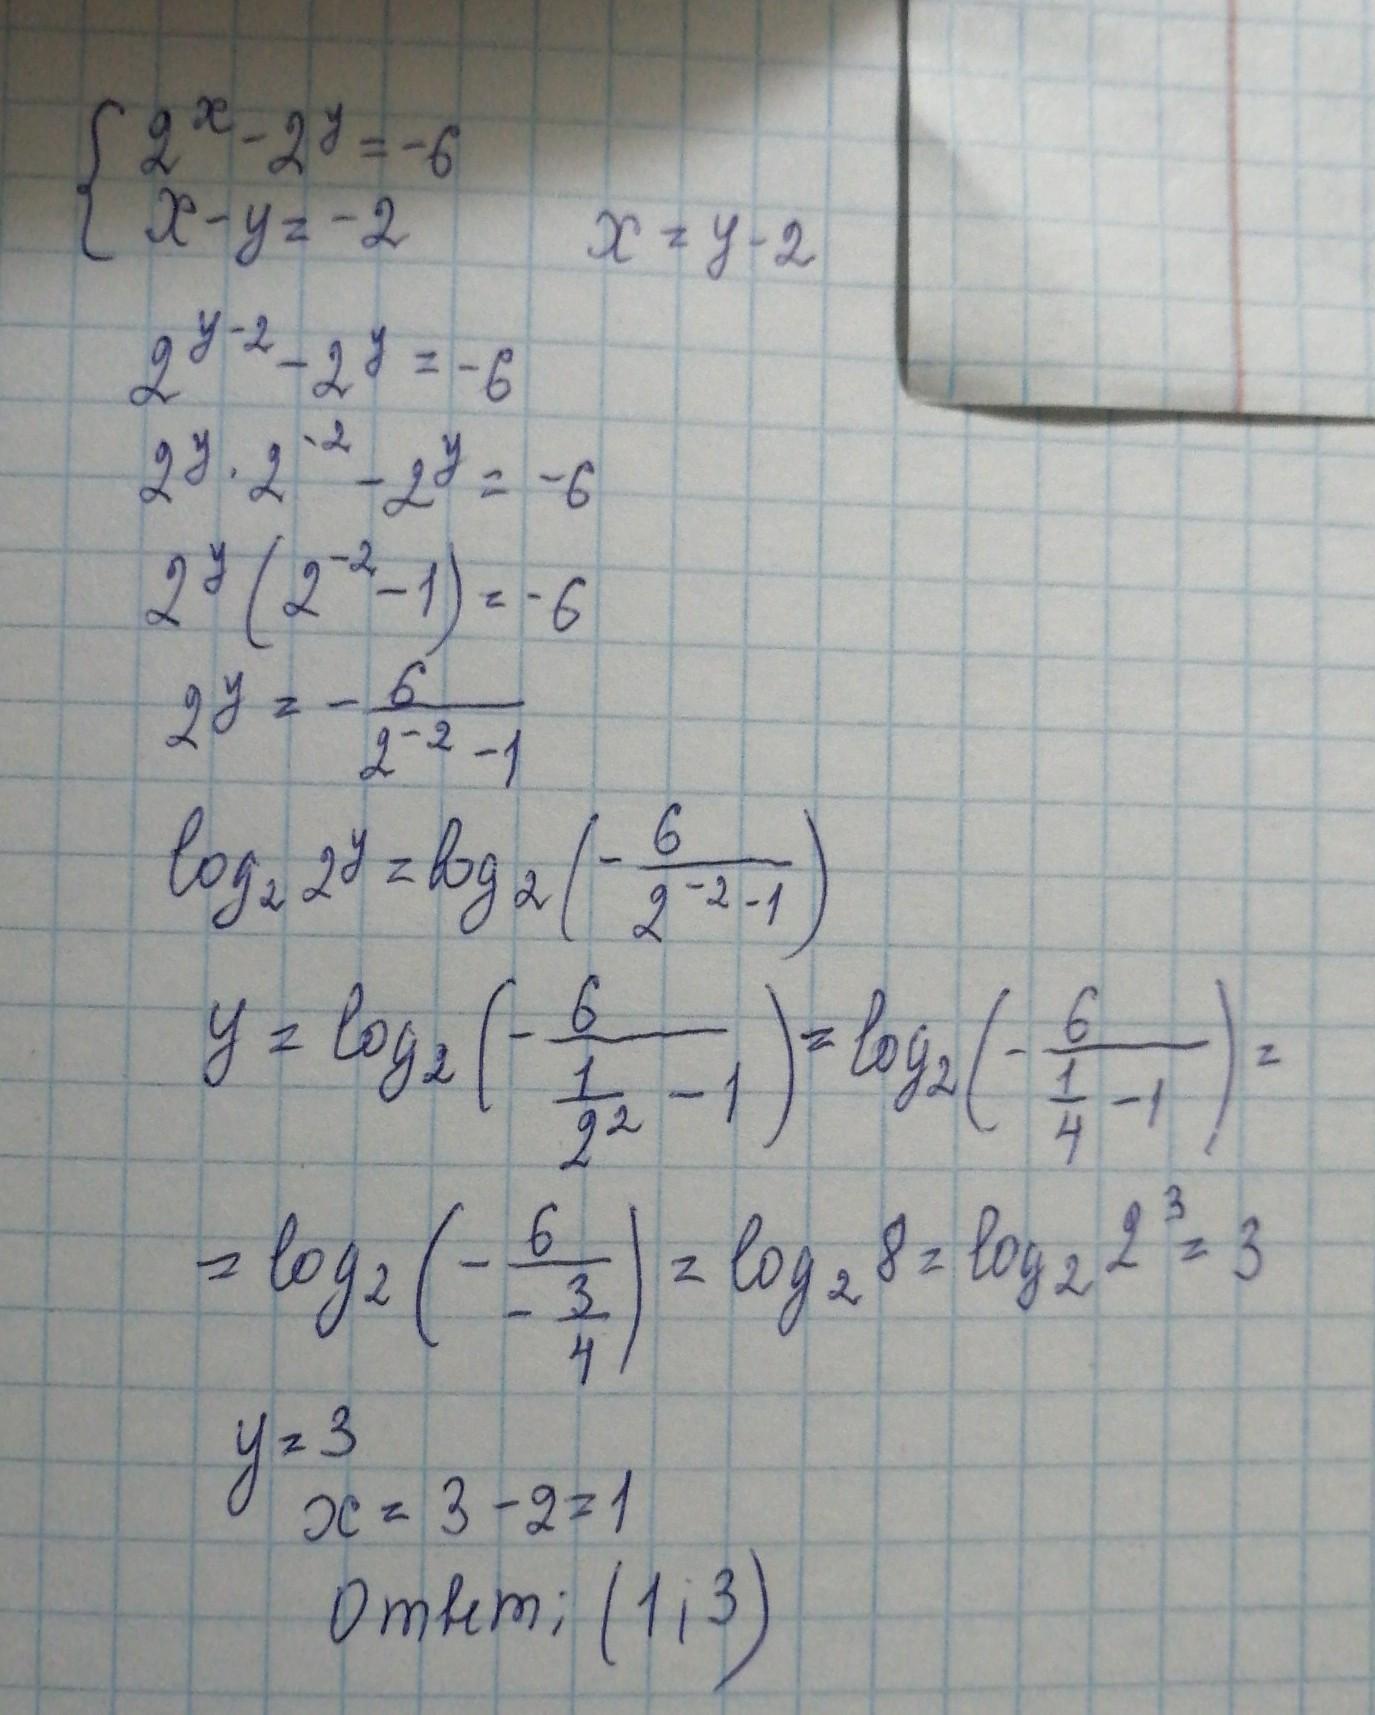 { 2^x - 2^y = -6
x - y = -2    x = y - 2
2^(y-2) - 2^y = -6
2^y · 2^(-2) - 2^y = -6
2^y (2^(-2) - 1) = -6
2^y = - 6/(2^(-2) - 1)
log₂ 2^y = log₂ (- 6/(2^(-2) - 1))
y = log₂ (- 6/(1/2² - 1)) = log₂ (- 6/(1/4 - 1)) =
= log₂ (- 6/(- 3/4)) = log₂ 8 = log₂ 2³ = 3
y = 3
x = 3 - 2 = 1
Ответ: (1; 3)